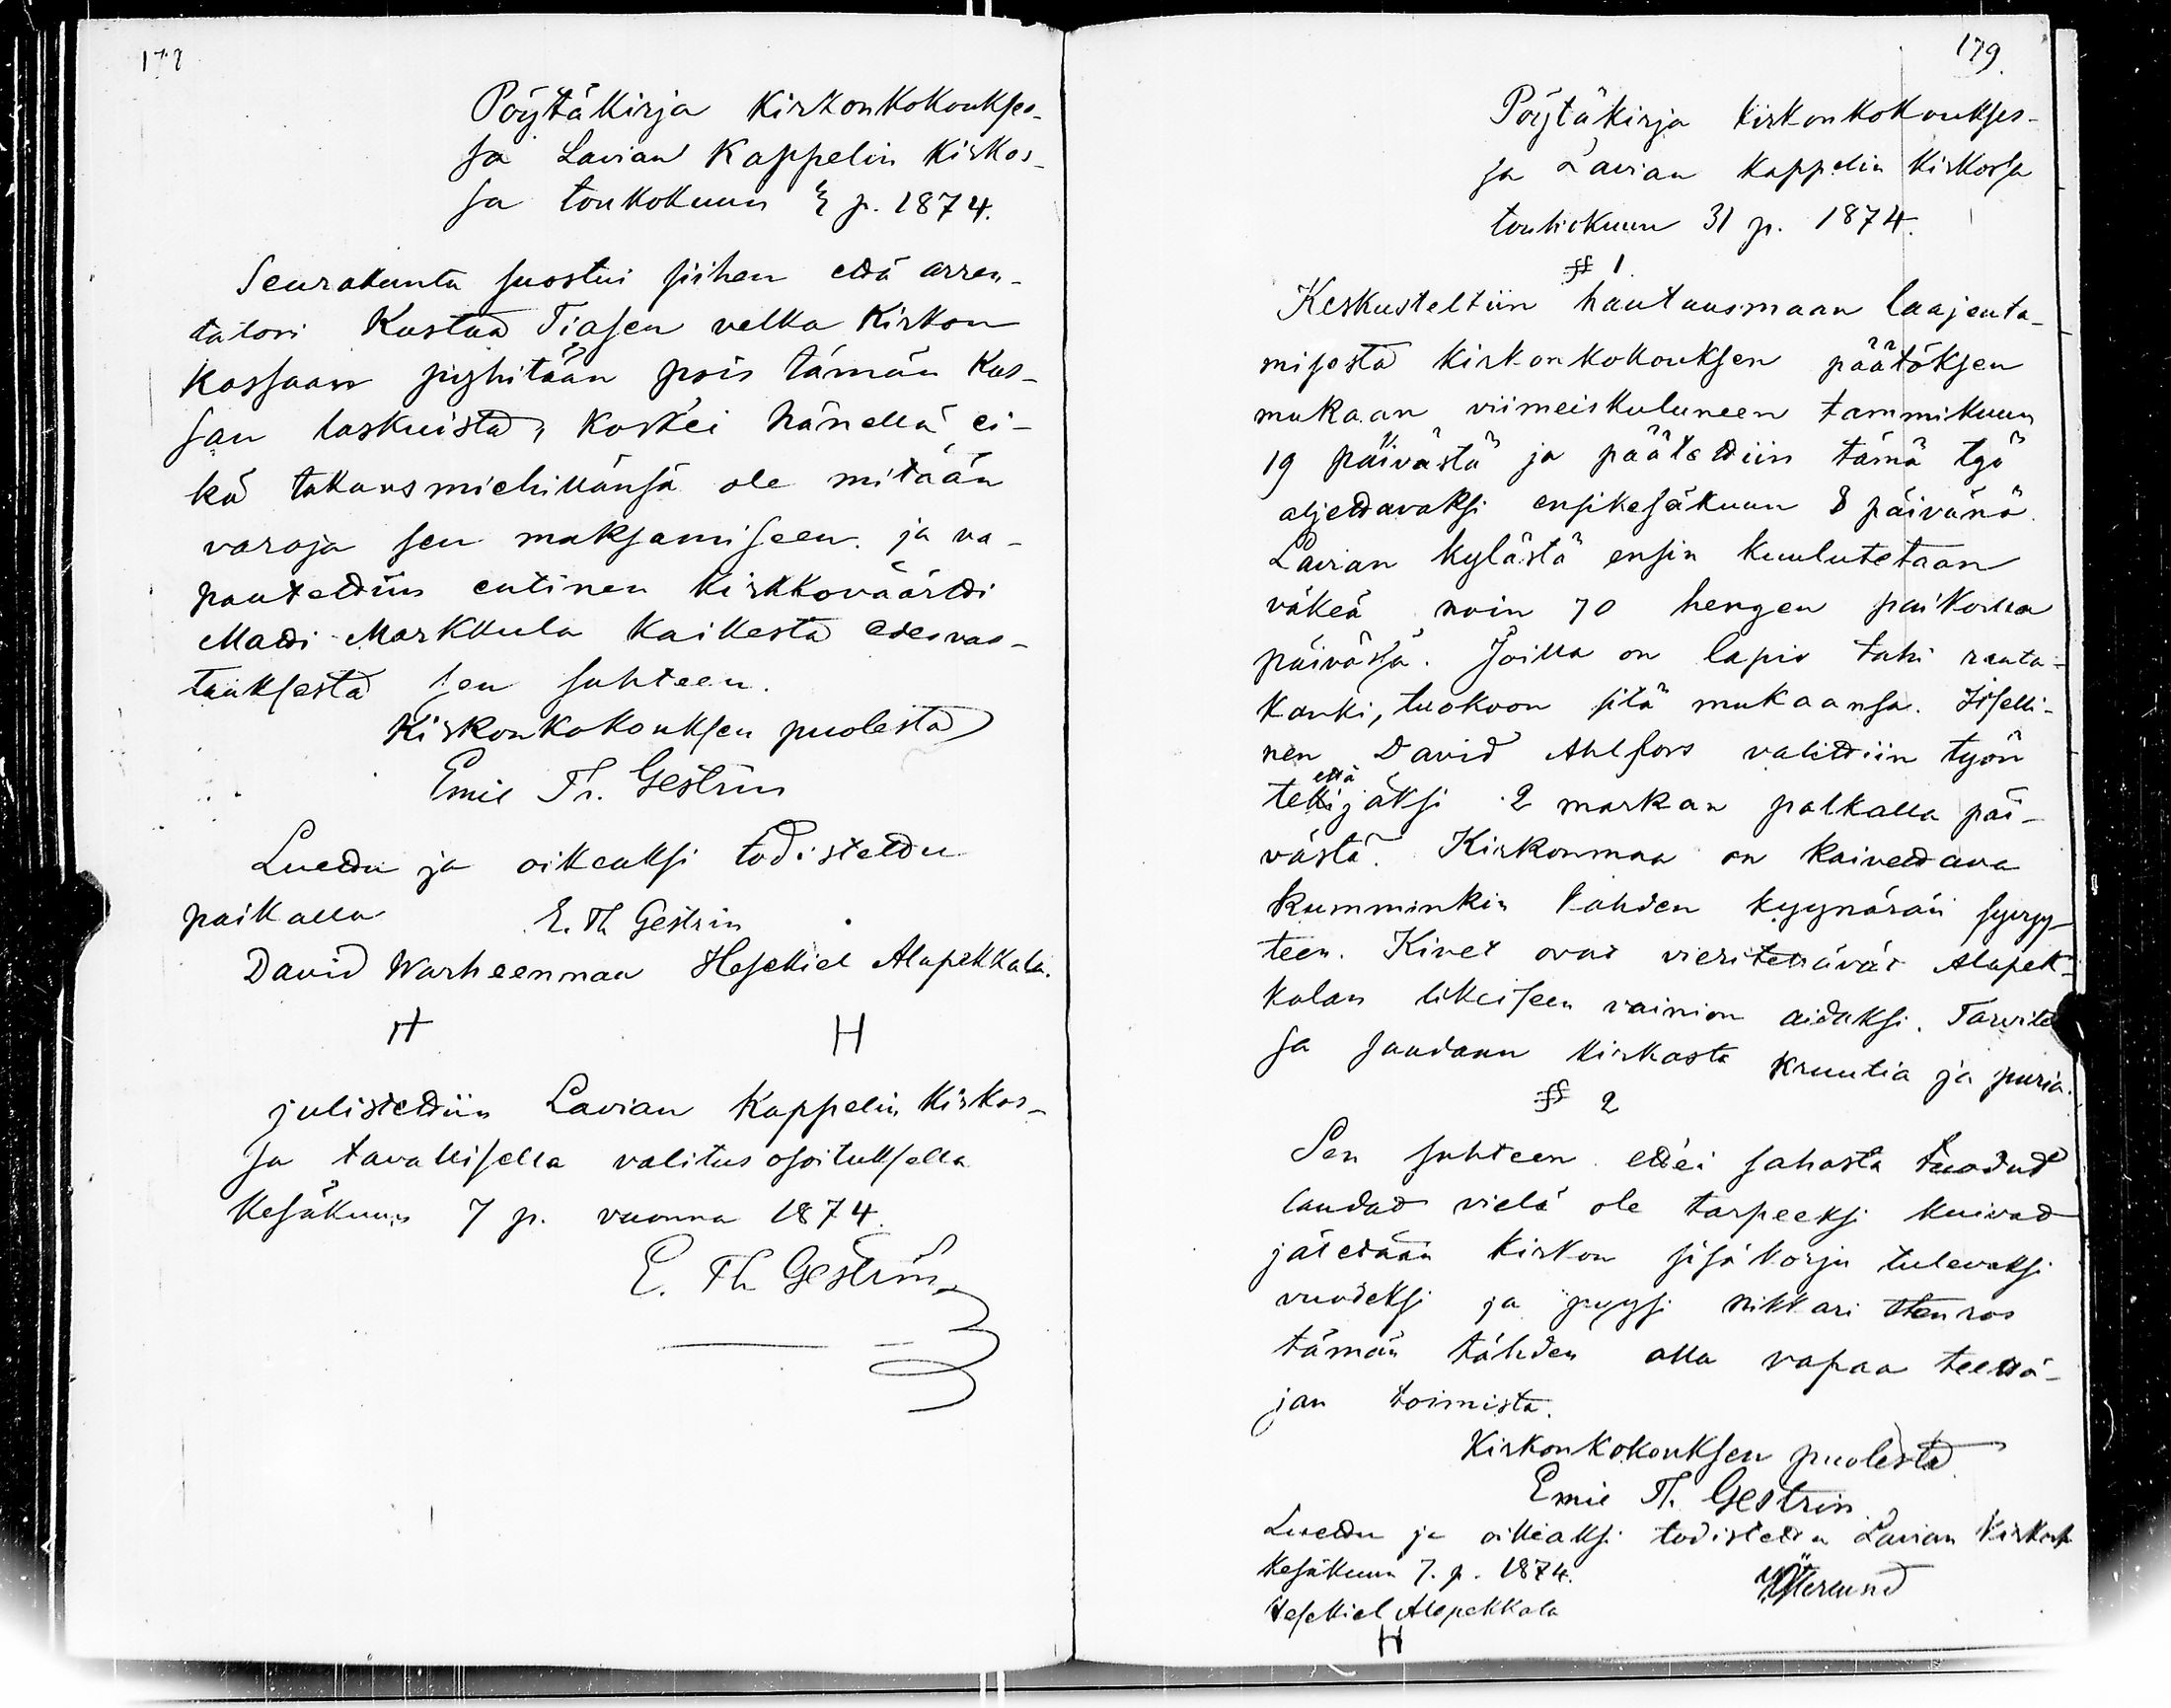 178
Pöytäkirja Kirkonkokoukses-
sa Lavian Kappelin Kirkos-
sa toukokuun p. 1874.
Seurakunta suostui siihen että arren-
tatori Kustaa Tiasen velka Kirkon
Kassaan pyhitään pois tämän Kas-
san laskuista, koskei hänellä ei-
kä takausmiehillänsä ole mitään
varoja sen maksamiseen. ja va-
pautettiin entinen Kirkkoväärti
Matti Markkula Kaikesta edesvas-
tauksesta sen suhteen.
Kirkonkokouksen puolesta
Emil Th. Gestrin
Luettu ja oikeaksi todistettu
paikalla E. Th Gestrin
David Warheenmaa Hesekiel Alapekkala.
H H
julistettiin Lavian Kappelin Kirkos-
sa tavallisella valitus osoituksella
Kesäkuun 7 p. vuonna 1874.
E. Th Gestrin
179.
Pöytäkirja kirkonkokoukses-
sa Lavian kappelin Kirkossa
toukokuun 31 p. 1874.
§ 1.
Keskusteltiin hautausmaan laajenta-
misesta kirkonkokouksen päätöksen
mukaan viimeiskuluneen tammikuun
19 päivästä ja päätettiin tämä työ
aljettavaksi ensikesäkuun 8 päivänä.
Lavian kylästä ensin kuulutetaan
väkeä noin 70 hengen paikoilla
päivässä. Joilla on lapio tahi rauta-
kanki, tuokoon sitä mukaansa. Itselli-
nen David Ahlfors valittiin työn
että
tekijäksi 2 markan palkalla päi-
västä. Kirkonmaa on kaivettava
kumminkin kahden kyynärän syvyy-
teen. Kivet ovat vieritettävät Alapek-
kalan likeiseen vainion aidaksi. Tarvites
sa saadaan kirkosta kruutia ja puria.
§ 2
Sen suhteen ettei sahasta tuodut
laudat vielä ole tarpeeksi kuivat
jätetään kirkon sisäkorju tulevaksi
vuodeksi ja pyysi nikkari Stenros
tämän tähden olla vapaa teettä-
jän toimista.
Kirkonkokouksen puolesta
Emil Th. Gestrin.
Luettu ja oikeaksi todistettu Lavian Kirkossa
Kesäkuun 7. p. 1874. Österlund
Hesekiel Alapekkala
H